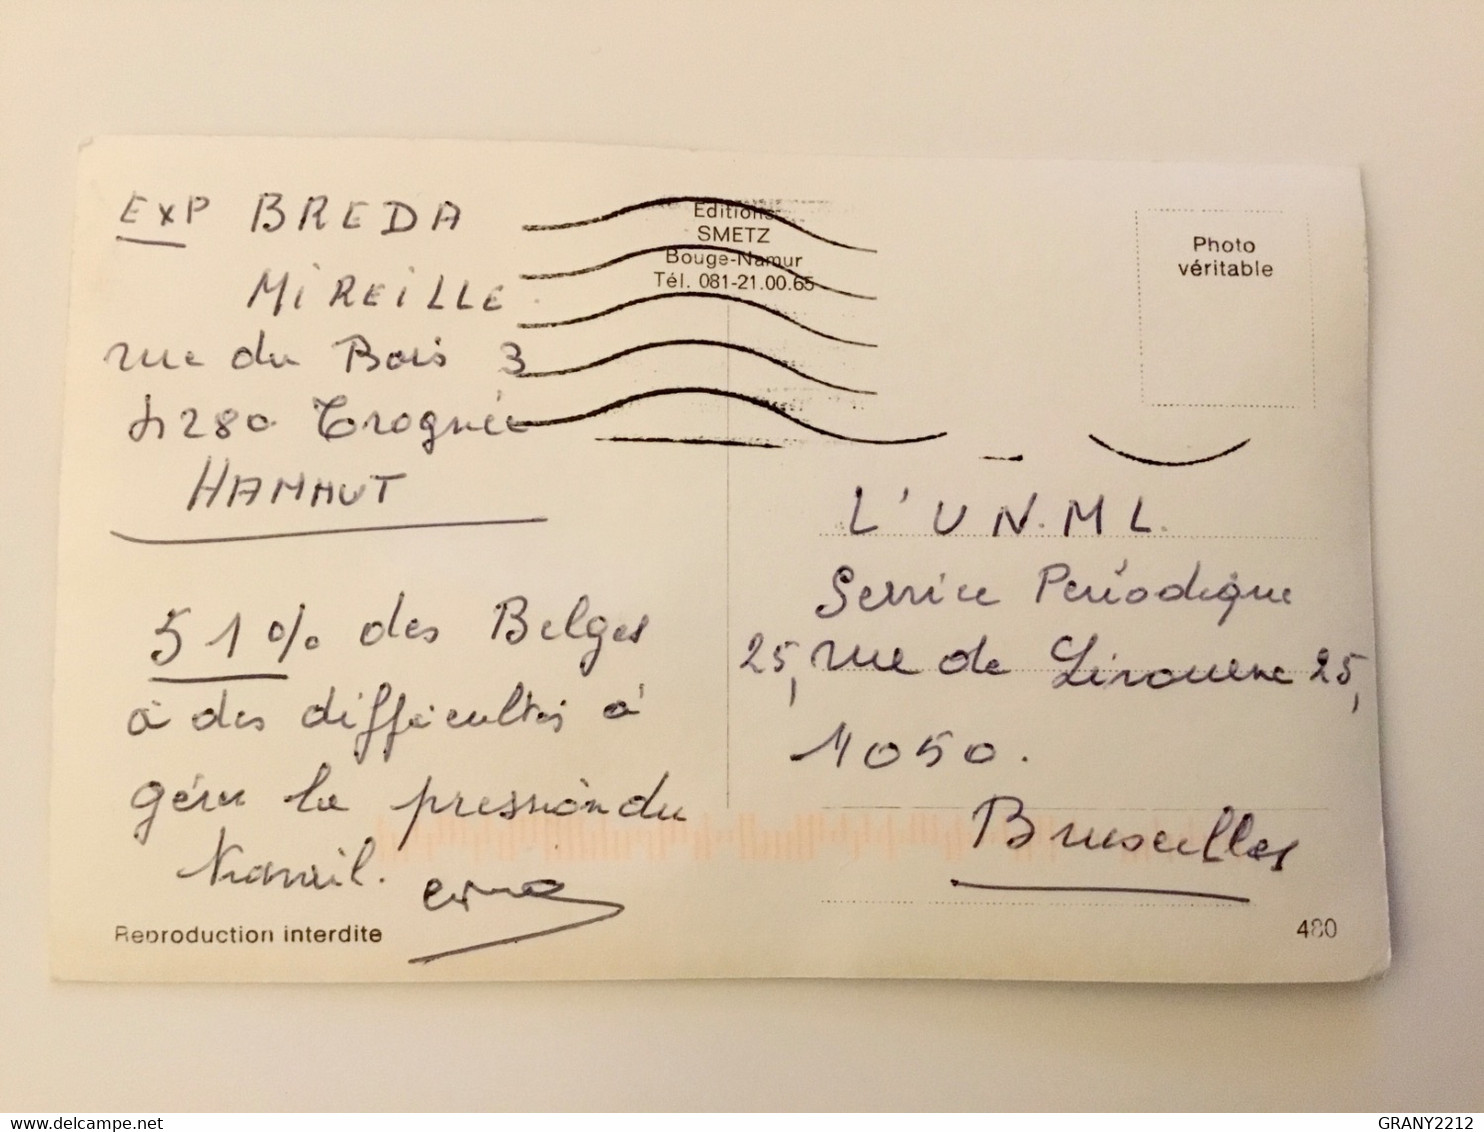 EXP BREDA
MiREiLLE
rue du Bois 3
4280 Trognée
HANNUT
51% des Belges
à des difficultés à
gérer la pression du
travail.
Reproduction interdite
Editions
SMETZ
Bouge-Namur
Tél. 081-21.00.65
Photo
véritable
L'U N.M L.
Service Periodique
25, rue de Livourne 25,
1050.
Bruxelles
480
delcampe.net
GRANY2212